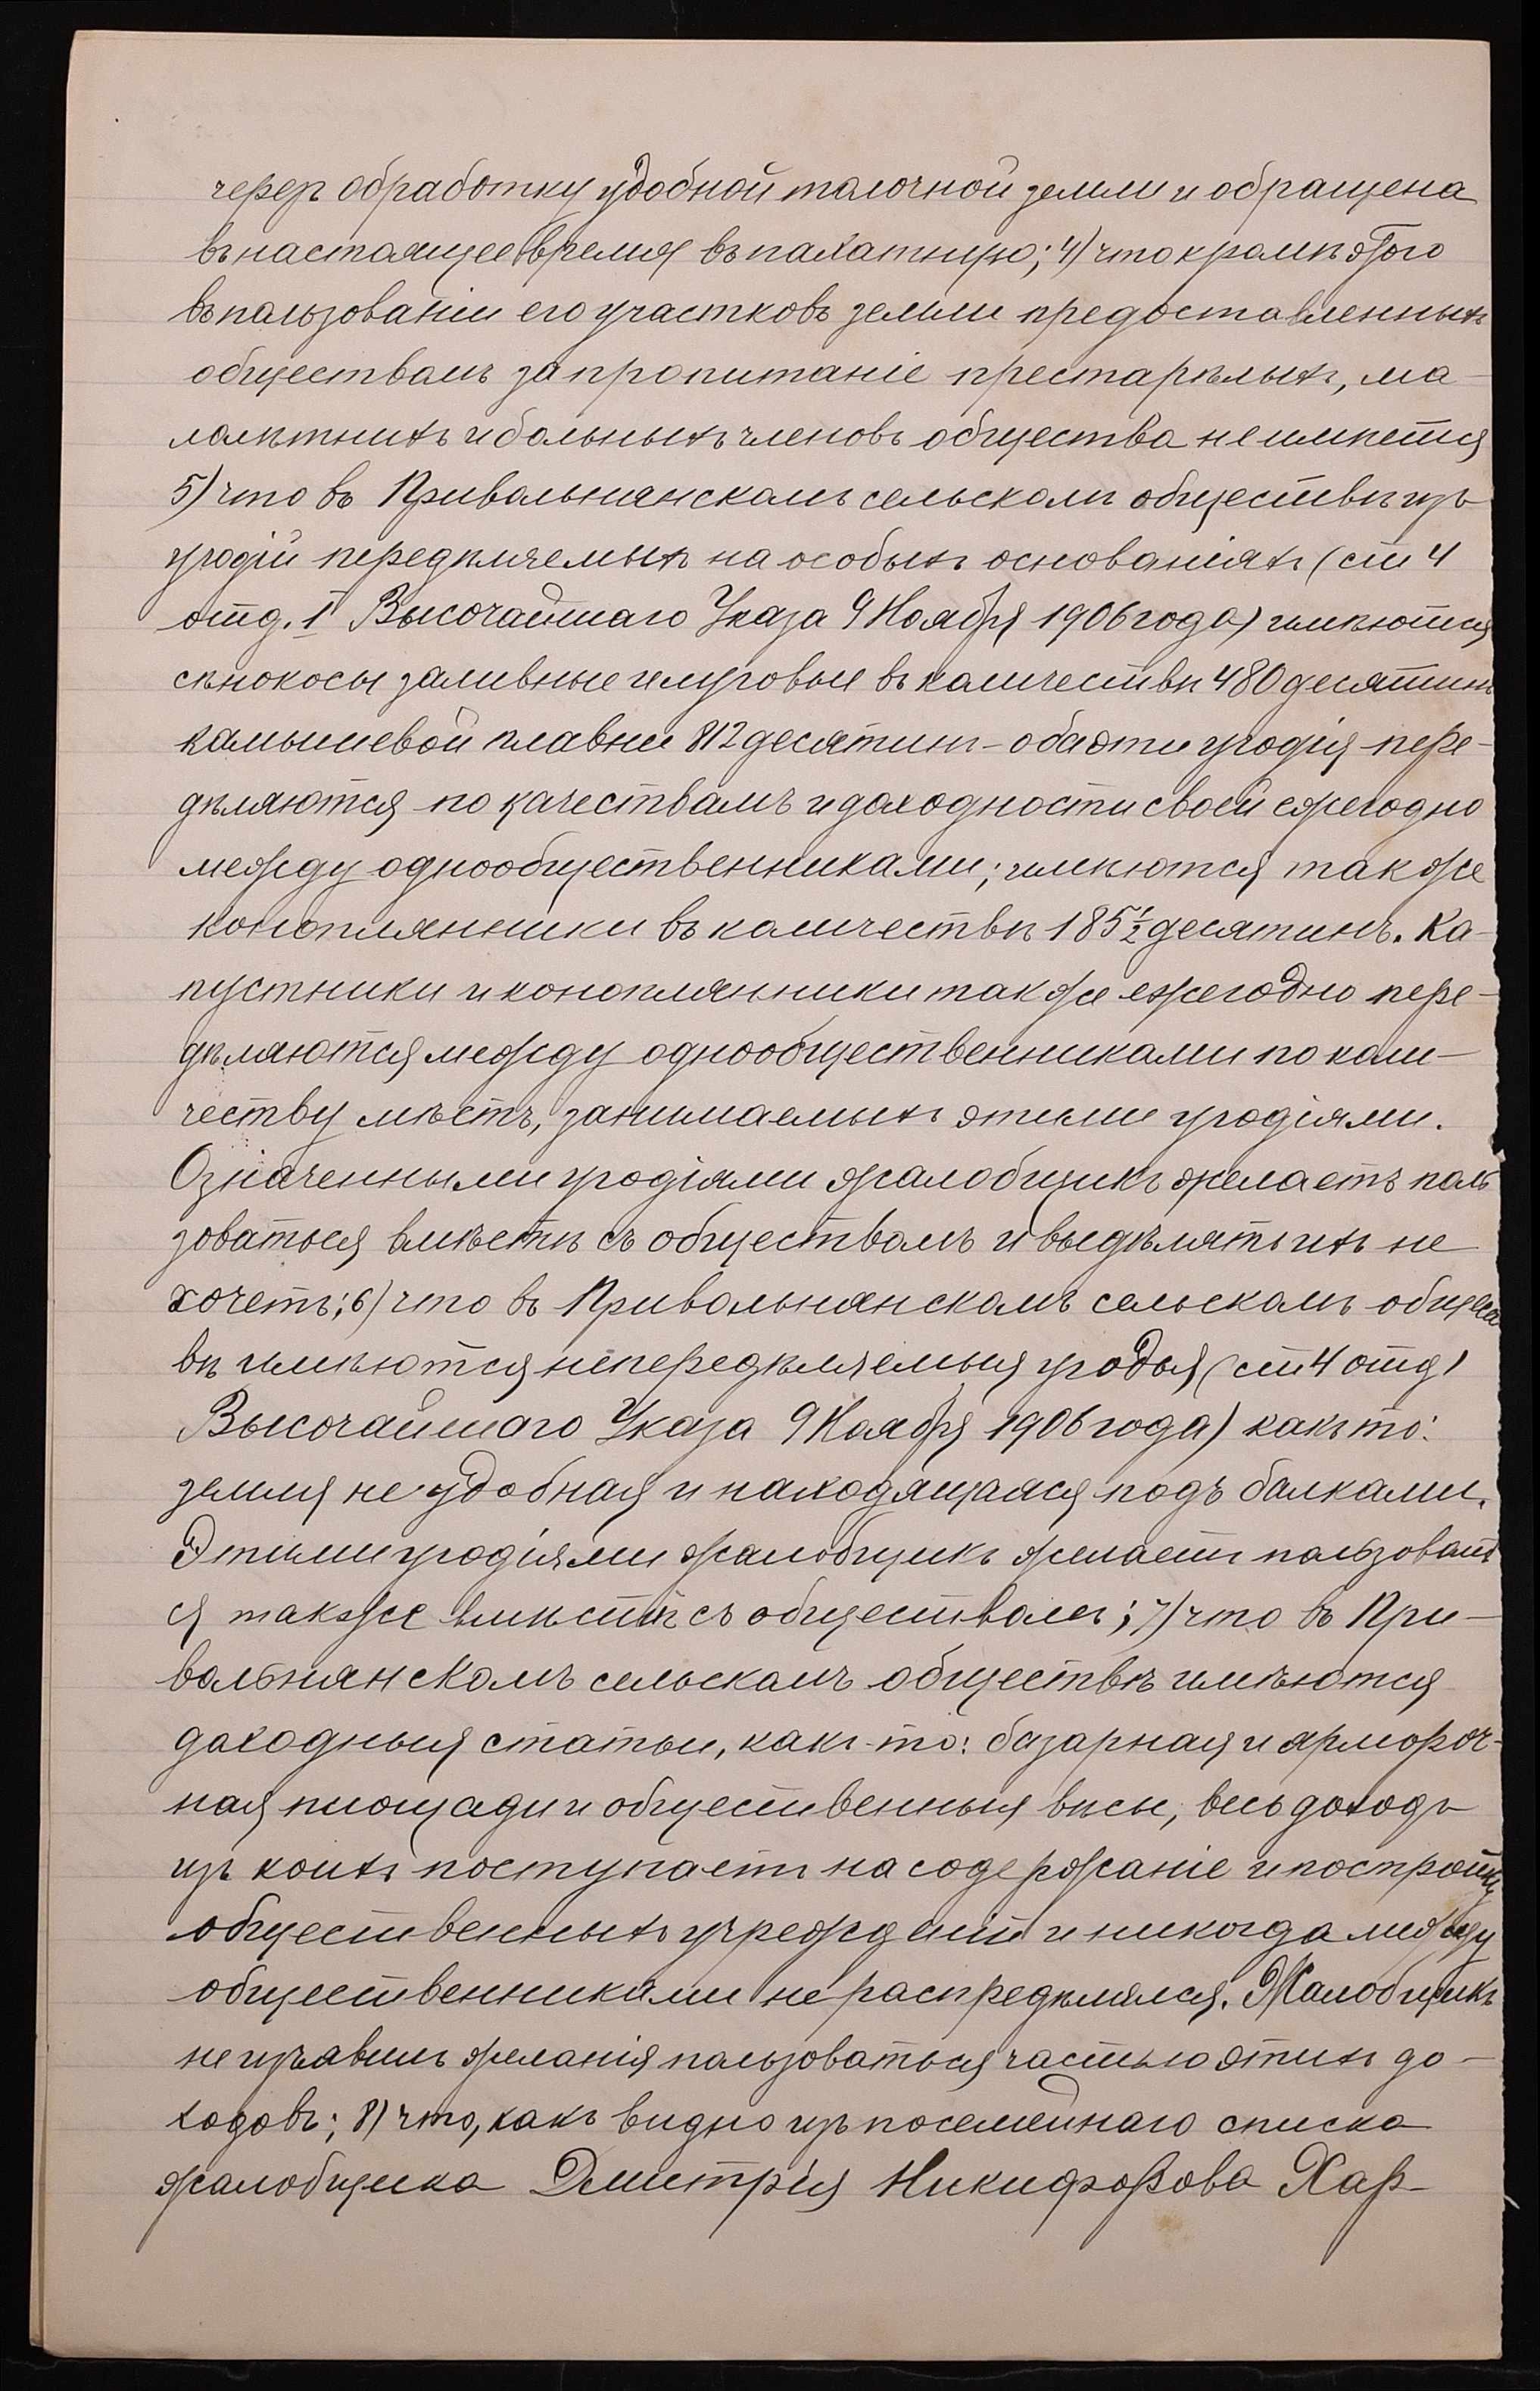 черезъ обработку удобной толочной земли и обращена
въ настоящее время въ пахатную; 4) что кромѣ этого
въ пользованіи его участковъ земли предоставленныхъ
обществомъ за пропитаніе престарѣлыхъ, ма-
лолѣтнихъ и больныхъ членовъ общества не имѣется
5) что въ Привольнянскомъ сельскомъ обществѣ изъ
угодій передѣляемыхъ на особыхъ основаніяхъ (ст 4
отд. I Высочайшаго Указа 9 Ноября 1906 года) имѣются
сѣнокосы заливные и луговые въ количествѣ 480 десятинъ
камышевой плавни 812 десятин - оба эти угодія пере-
дѣляются по качествамъ и доходности своей ежегодно
между однообщественниками; имѣются так же
конопляники въ количествѣ 185 1/2 десятинъ. Ка-
пустники и конопляники так же ежегодно пере-
дѣляются между однообщественниками по коли-
честву мѣстъ, занимаемыхъ этими угодіями.
Означенными угодіями жалобщикъ желаетъ поль
зоваться вмѣстѣ съ обществомъ и выдѣлять ихъ не
хочетъ; 6) что въ Привольнянскомъ сельскомъ общест
вѣ имѣются непередѣляемыя угодья (ст 4 отд I
Высочайшаго Указа 9 Ноября 1906 года) какъ то:
земля не удобная и находящаяся подъ балками.
Этими угодіями жалобщикъ желаетъ пользовать
ся также вмѣстѣ съ обществомъ; 7) что въ При-
вольнянскомъ сельскомъ обществѣ имѣются
доходныя статьи, какъ-то: базарная и ярмороч-
ная площади и общественныя вѣсы, весь доходъ
изъ коихъ поступаетъ на содержаніе и постройку
общественныхъ учрежденій и никогда между
общественниками не распредѣлялся. Жалобщикъ
не изъявилъ желанія пользоваться частью этихъ до-
ходовъ; 8) что, какъ видно изъ посемейнаго списка
жалобщика Дмитрія Никифорова Хар-